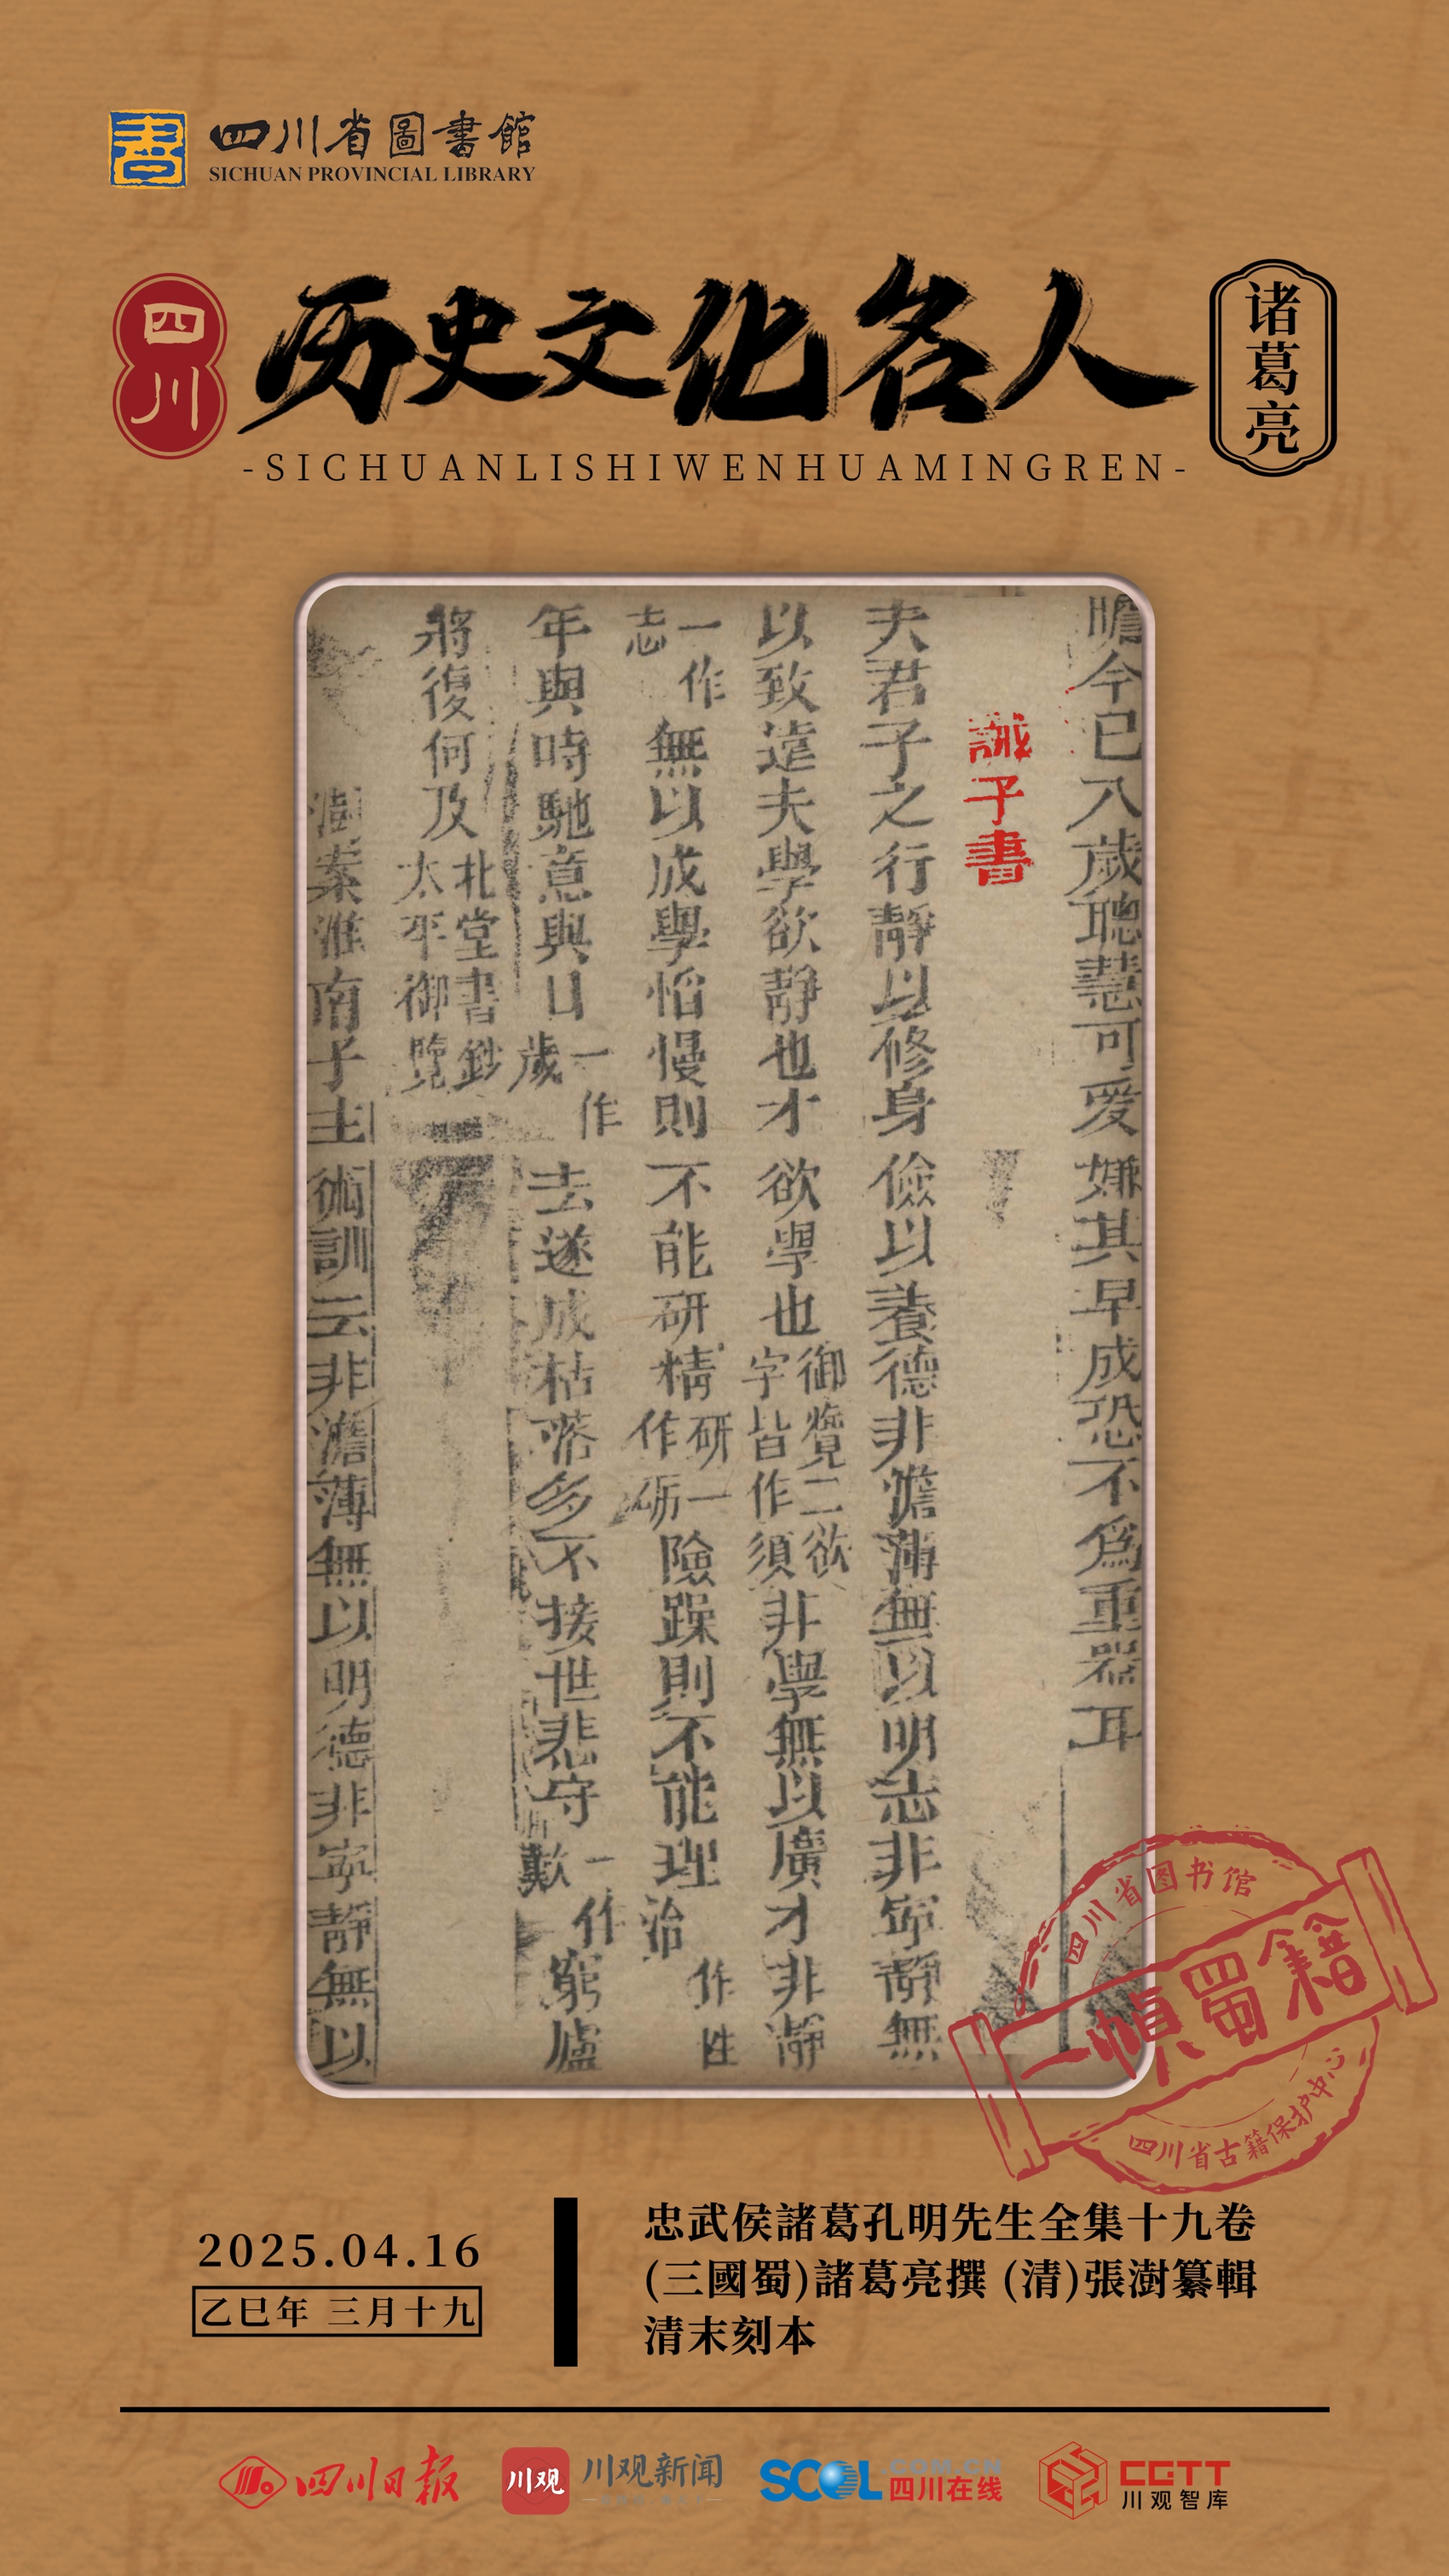 書 四川省圖書館
SICHUAN PROVINCIAL LIBRARY
四川
历史文化名人
诸葛亮
-SICHUANLISHIWENHUAMINGREN-
瞻今已八歲聰慧可爱嫌其早成恐不爲重器耳
誡子書
夫君子之行靜以修身儉以養德非憺薄無以明志非寧靜無
以致遠夫學欲靜也才欲學也御覽二欲字皆作須非學無以廣才非靜
一作志無以成學慆慢則不能研精研一作砺險躁則不能理作性治
年與時馳意與日一作歲去遂成枯落多不接世悲守一作歎窮廬
將復何及北堂書鈔太平御覽
澍案淮南子主術訓云非澹薄無以明德非寧靜無以
四川省图书馆
一幀蜀籍
四川省古籍保护中心
2025.04.16
乙巳年 三月十九
忠武侯諸葛孔明先生全集十九卷
(三國蜀)諸葛亮撰 (清)張澍纂輯
清末刻本
四川日报
川观 川观新闻
SCOL.COM.CN 四川在线
CGTT 川观智库